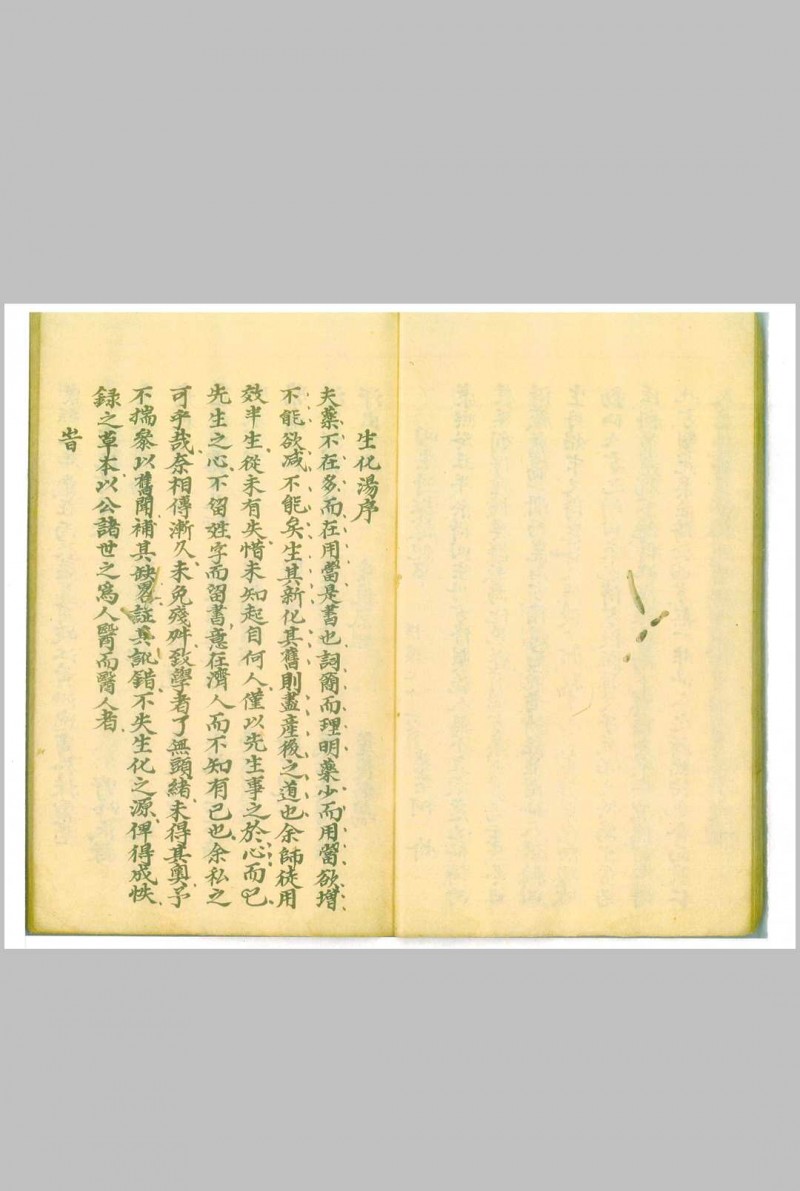 生化湯序
夫藥不在多而在用當是書也詞簡而理明藥少而用當欲增
不能欲减不能矣生其新化其舊則盡產後之道也余師徒用
效半生從未有失惜未知起自何人僅以先生事之於心而已
先生之心不留姓字而留書意在濟人而不知有已也余私之
可乎哉奈相傳漸久未免殘舛致學者了無頭緒未得其奧予
不揣叅以舊聞補其缺畧註其訛錯不失生化之源俾得成帙
録之草本以公諸世之爲人醫而醫人者
旹